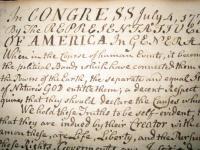 In CONGRESS July 4, 177
By the REPRESENTATIVES
OF AMERICA In GENERA
When in the Course of human Events, it becom
the political Bands which have connected them
the Powers of the Earth, the separate and equal
of Nature's GOD entitle them; a decent respect
quires that they should declare the Causes which
We hold these Truths to be self-evident,
that they are endowed by their Creator with
among these are Life, Liberty, and the Pursu
these Rights, Governments are